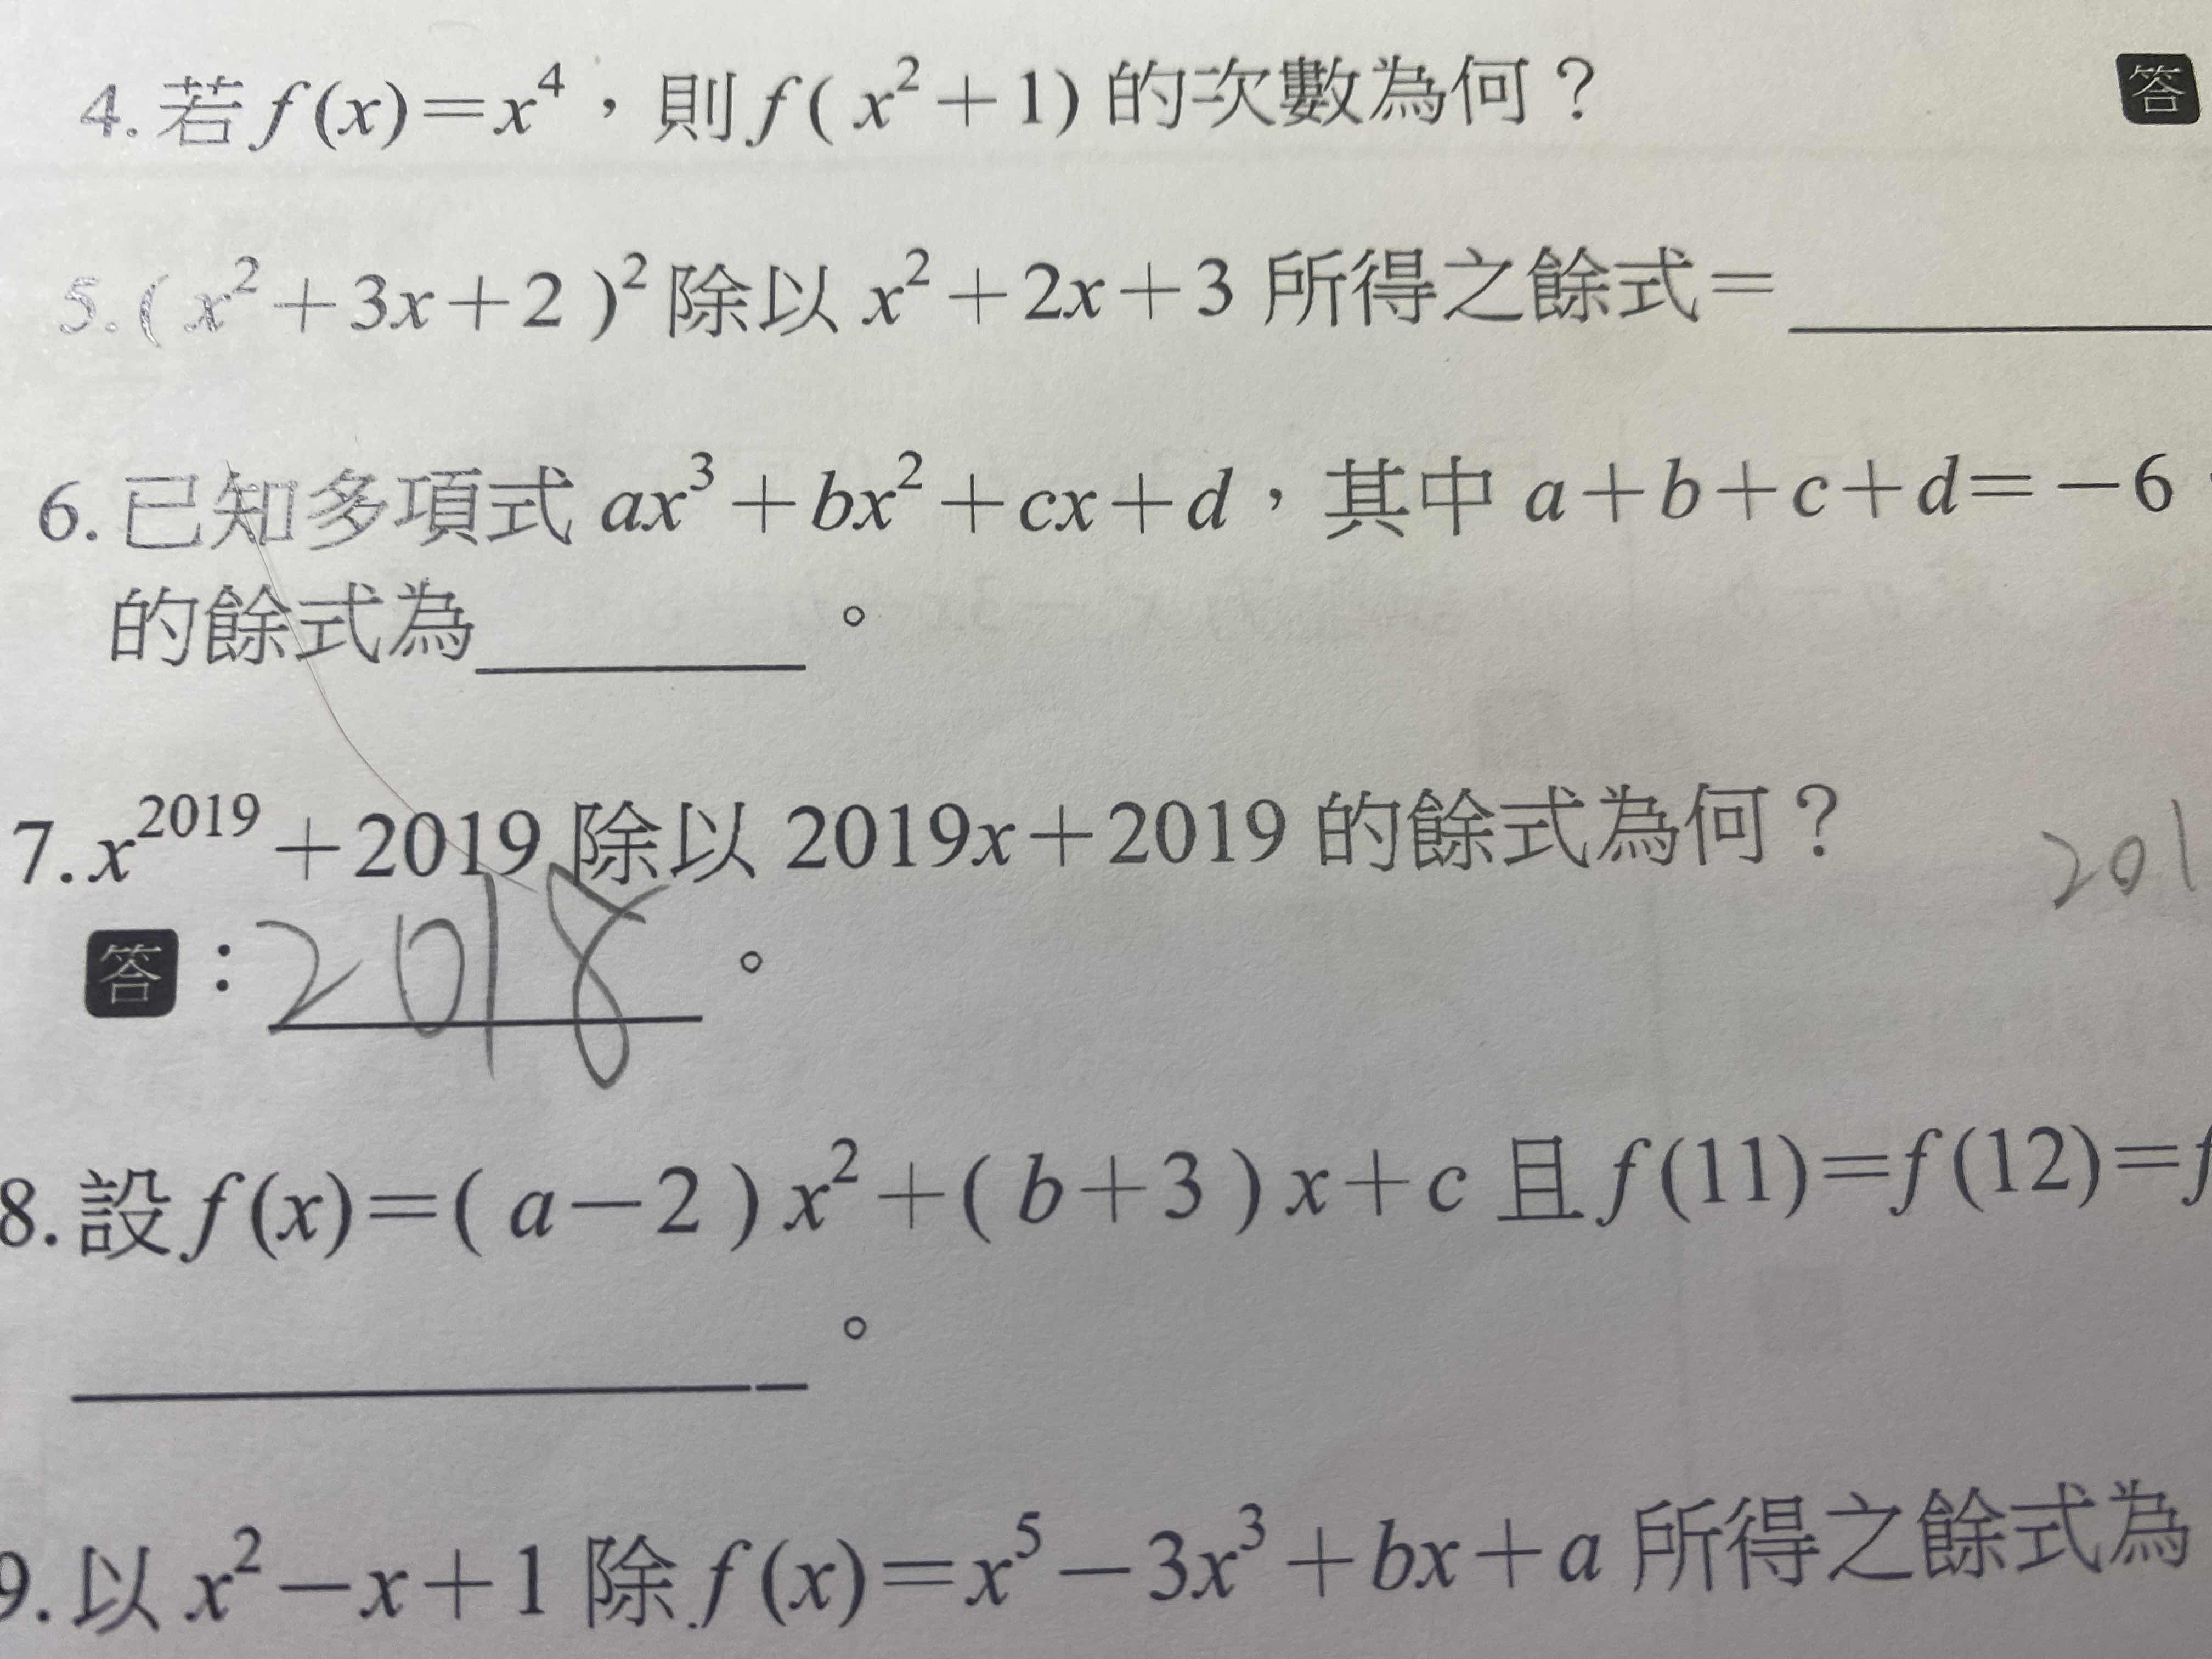 4. 若 f(x)=x⁴，則 f( x²+1) 的次數為何？ 答
5. ( x²+3x+2 )² 除以 x²+2x+3 所得之餘式=
6. 已知多項式 ax³+bx²+cx+d，其中 a+b+c+d=-6
的餘式為 。
7. x²⁰¹⁹+2019 除以 2019x+2019 的餘式為何？ 201
答：2018 。
8. 設 f(x)=( a-2 ) x²+( b+3 ) x+c 且 f(11)=f(12)=f
。
9. 以 x²-x+1 除 f(x)=x⁵-3x³+bx+a 所得之餘式為